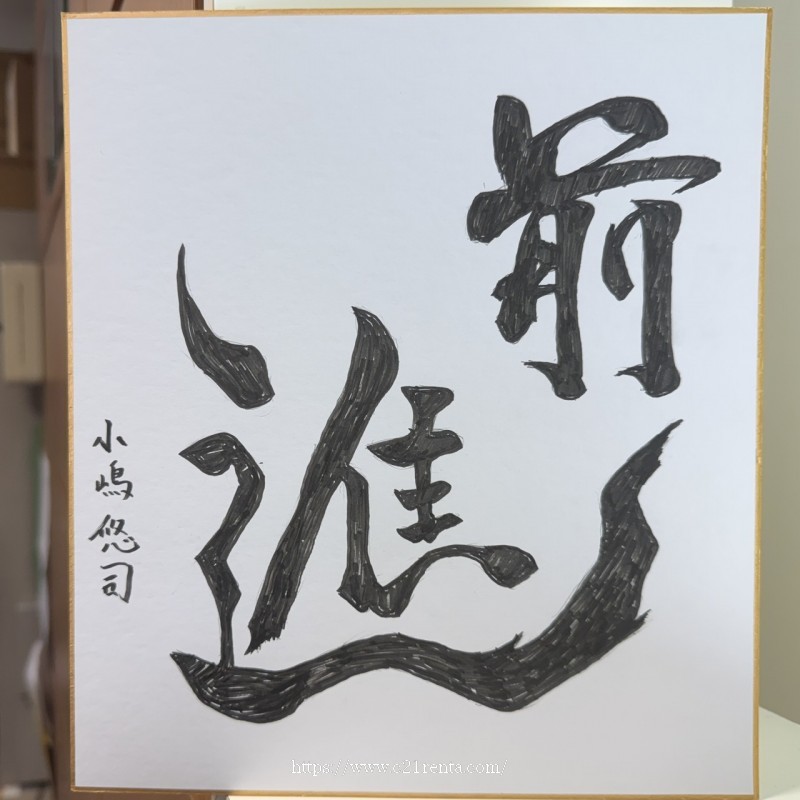 前
進
小嶋悠司
https://www.c21renta.com/